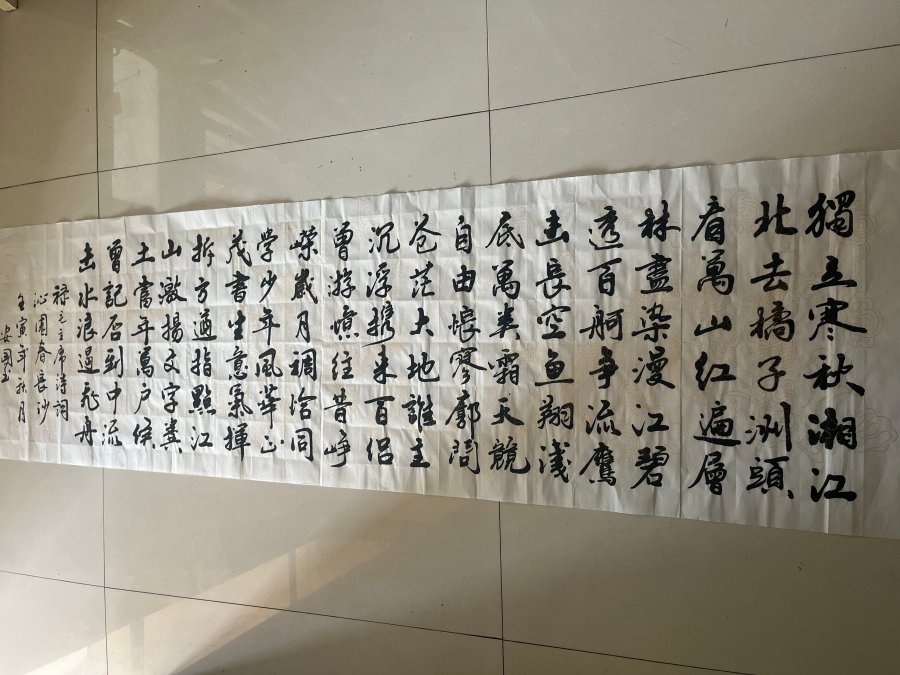 獨立寒秋湘江
北去橘子洲頭
看萬山紅遍層
林盡染漫江碧
透百舸争流鷹
击長空鱼翔淺
底萬类霜天競
自由悵寥廓問
苍茫大地誰主
沉浮携来百侣
曾游憶往昔峥
嵘歲月稠恰同
学少年風華正
茂書生意氣揮
斥方遒指點江
山激揚文字粪
土當年萬户侯
曾記否到中流
击水浪遏飛舟
禄毛主席诗词
沁園春長沙
壬寅年秋月
安國玉